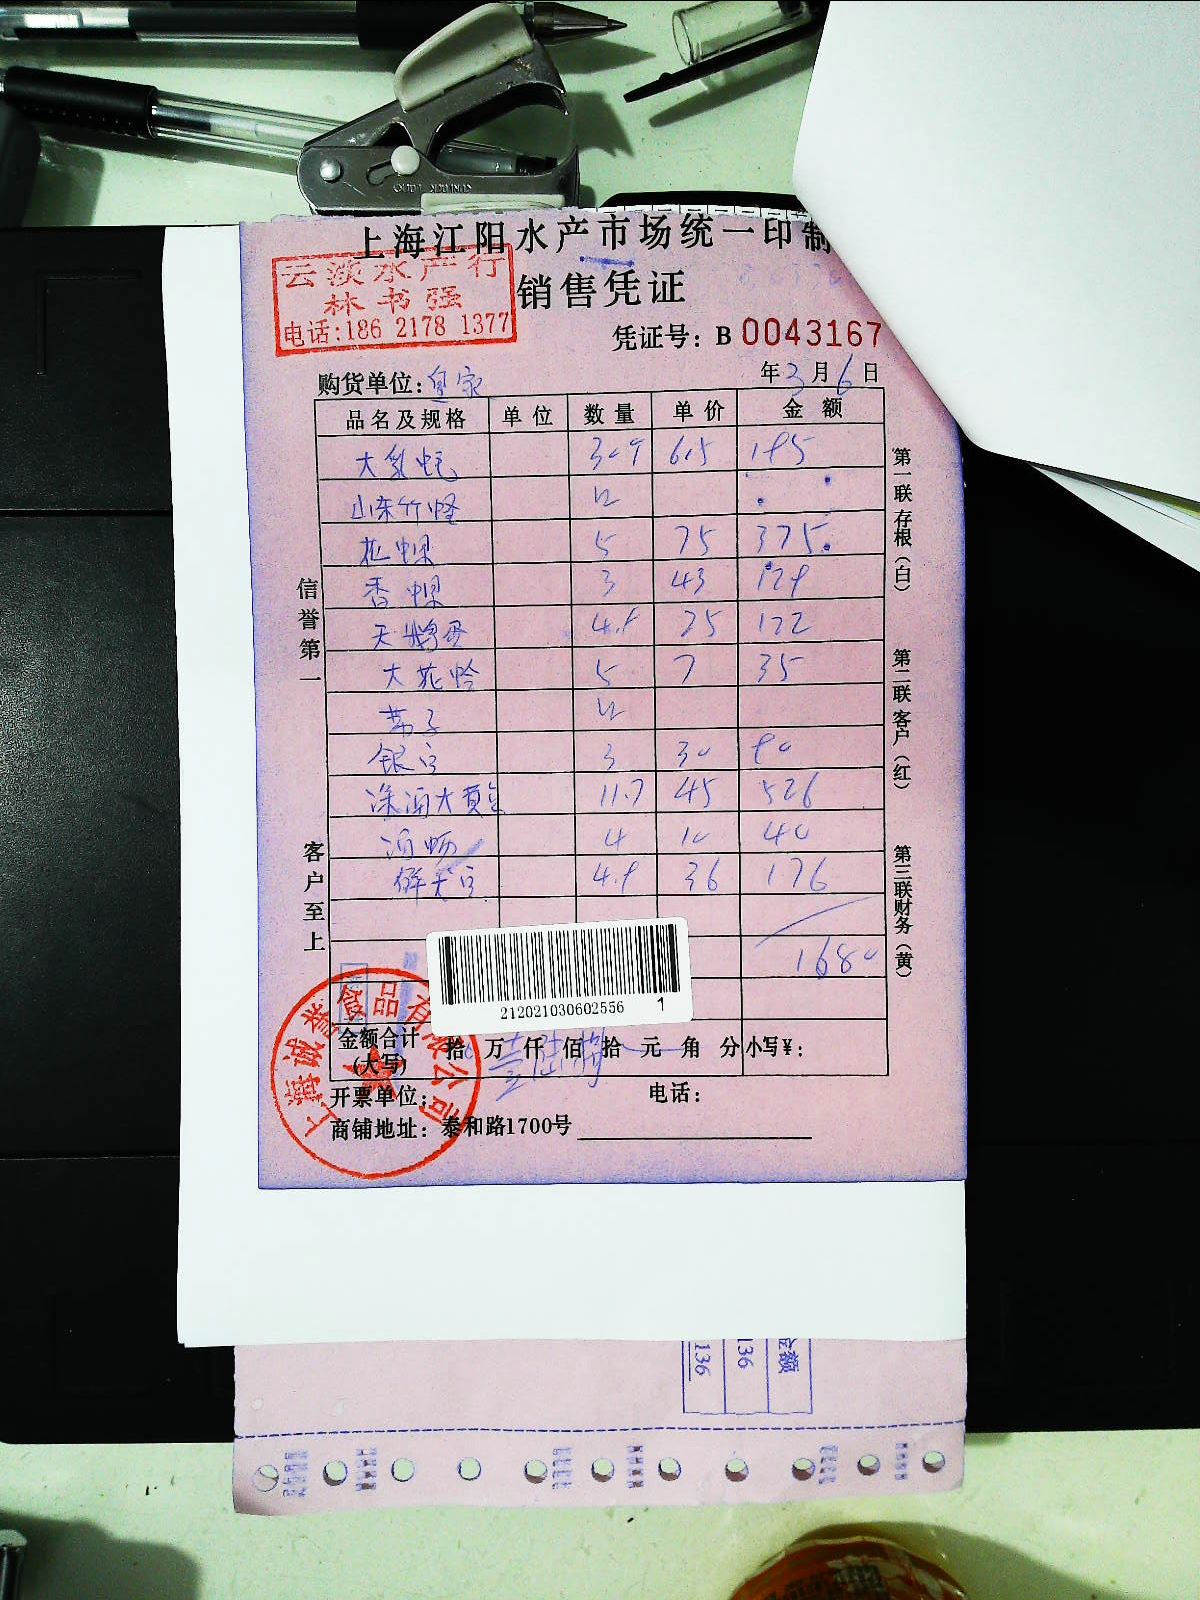 上海江阳水产市场统一印制
云淡水产行
林书强
电话:186 2178 1377
销售凭证
凭证号: B 0043167
购货单位:
年3月6日
品名及规格 单位 数量 单价 金额
大乳蛇 65 195
山东竹蛏
花螺 5 75 375
香螺 3 43 129
天鹅蛋 4.9 25 122
大花蛤 5 7 35
3 30 90
11.7 45 526
海肠 4 10 40
4.9 36 176
1680
信誉第一
客户至上
第一联 存根(白)
第二联 客户(红)
第三联 财务(黄)
212021030602556 1
金额合计(大写) 拾 万 仟 佰 拾 元 角 分 小写¥:
开票单位: 电话:
商铺地址: 泰和路1700号
上海诚誉食品有限公司
金额
136
136